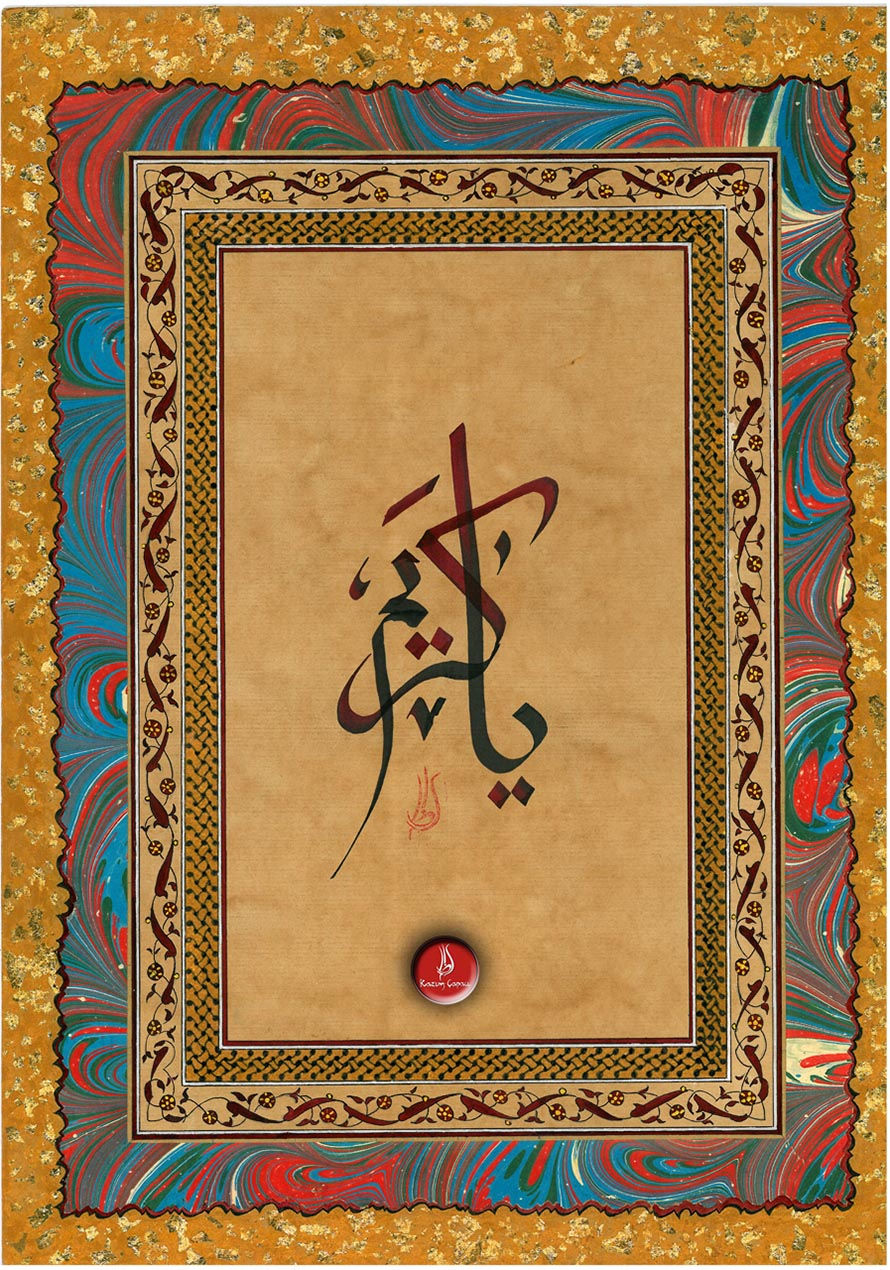 يا كريم
Kazım Çapacı